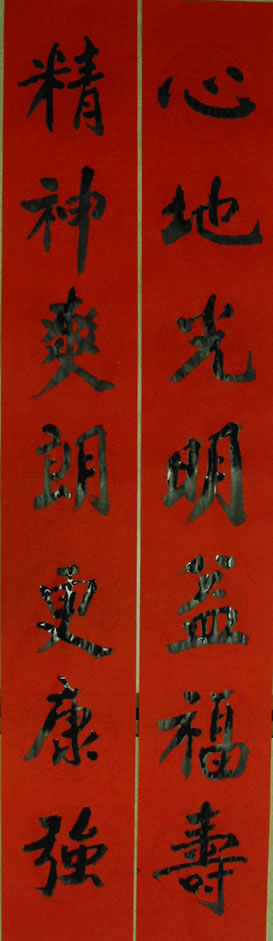 心地光明益福壽
精神爽朗更康強